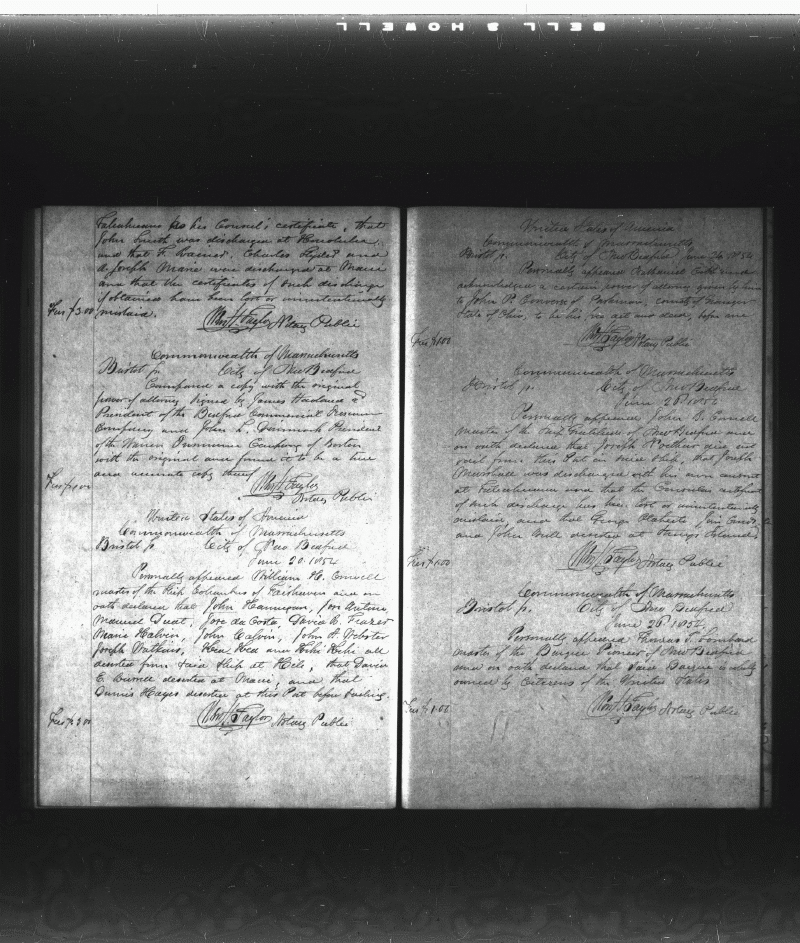 BELL & HOWELL
Talcahuano per his Consul's certificate, that
John Smith was discharged at Honolulu,
and that F. Charles Ryder and
Joseph were discharged at Maui
and that the certificates of such discharge
if obtained have been lost or unintentionally
mislaid.
Fees $3.00
Wm H. Taylor Notary Public
Commonwealth of Massachusetts
Bristol ss. City of New Bedford
Compared a copy with the original
power of attorney signed by James
President of the Bedford Commercial
Company and John L. Dimmock President
of the Warren Insurance Company of Boston
with the original and found it to be a true
and accurate copy thereof
Fees $1.00
Wm H. Taylor
Notary Public
United States of America
Commonwealth of Massachusetts
Bristol ss. City of New Bedford
June 20. 1854
Personally appeared William H. Crowell
master of the Ship Columbus of Fairhaven and on
oath declared that John Hannegan, Jose Antone,
Manuel Jose da Costa, David R. Frazer
John Calvin, John A. Webster
Joseph Watkins, and Kiki all
deserted from said Ship at Hilo, that David
E. deserted at Maui, and that
Dennis Hayes deserted at this Port before sailing.
Fees $3.00
Wm H. Taylor Notary Public
United States of America
Commonwealth of Massachusetts
Bristol ss. City of New Bedford June 26 1854
Personally appeared Nathaniel and
acknowledged a certain power of attorney given by him
to John P. Converse of Parkman, county of Geauga
State of Ohio, to be his free act and deed, before me
Fees $1.00
Wm H. Taylor Notary Public
Commonwealth of Massachusetts
Bristol ss. City of New Bedford
June 28. 1854
Personally appeared John S.
master of the Ship of New Bedford and
on oath declared that Joseph did not
sail from this Port in said Ship, that Joseph
Marshall was discharged with his own consent
at Talcahuano and that the Consular certificate
of such discharge has been lost or unintentionally
mislaid, and that George Roberts,
and John deserted at Island
Fees $1.00
Wm H. Taylor Notary Public
Commonwealth of Massachusetts
Bristol ss. City of New Bedford
June 28. 1854
Personally appeared Thomas S. Lombard
master of the Barque Pioneer of New Bedford
and on oath declared that said Barque is wholly
owned by Citizens of the United States
Fees $1.00
Wm H. Taylor Notary Public